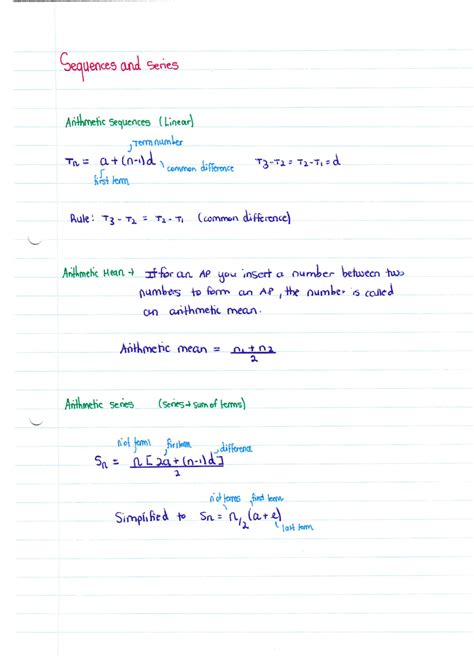 Sequences and series
Arithmetic sequences (Linear)
Term number
Tn = a + (n-1)d
common difference
T3-T2 = T2-T1 = d
first term
Rule: T3 - T2 = T2 - T1 (common difference)
Arithmetic Mean → If for an AP you insert a number between two
numbers to form an AP, the number is called
an arithmetic mean.
Arithmetic mean = n1 + n2
2
Arithmetic series (series → sum of terms)
first term
difference
Sn = n [2a + (n-1)d]
2
n° of terms first term
Simplified to Sn = n/2 (a + l)
last term